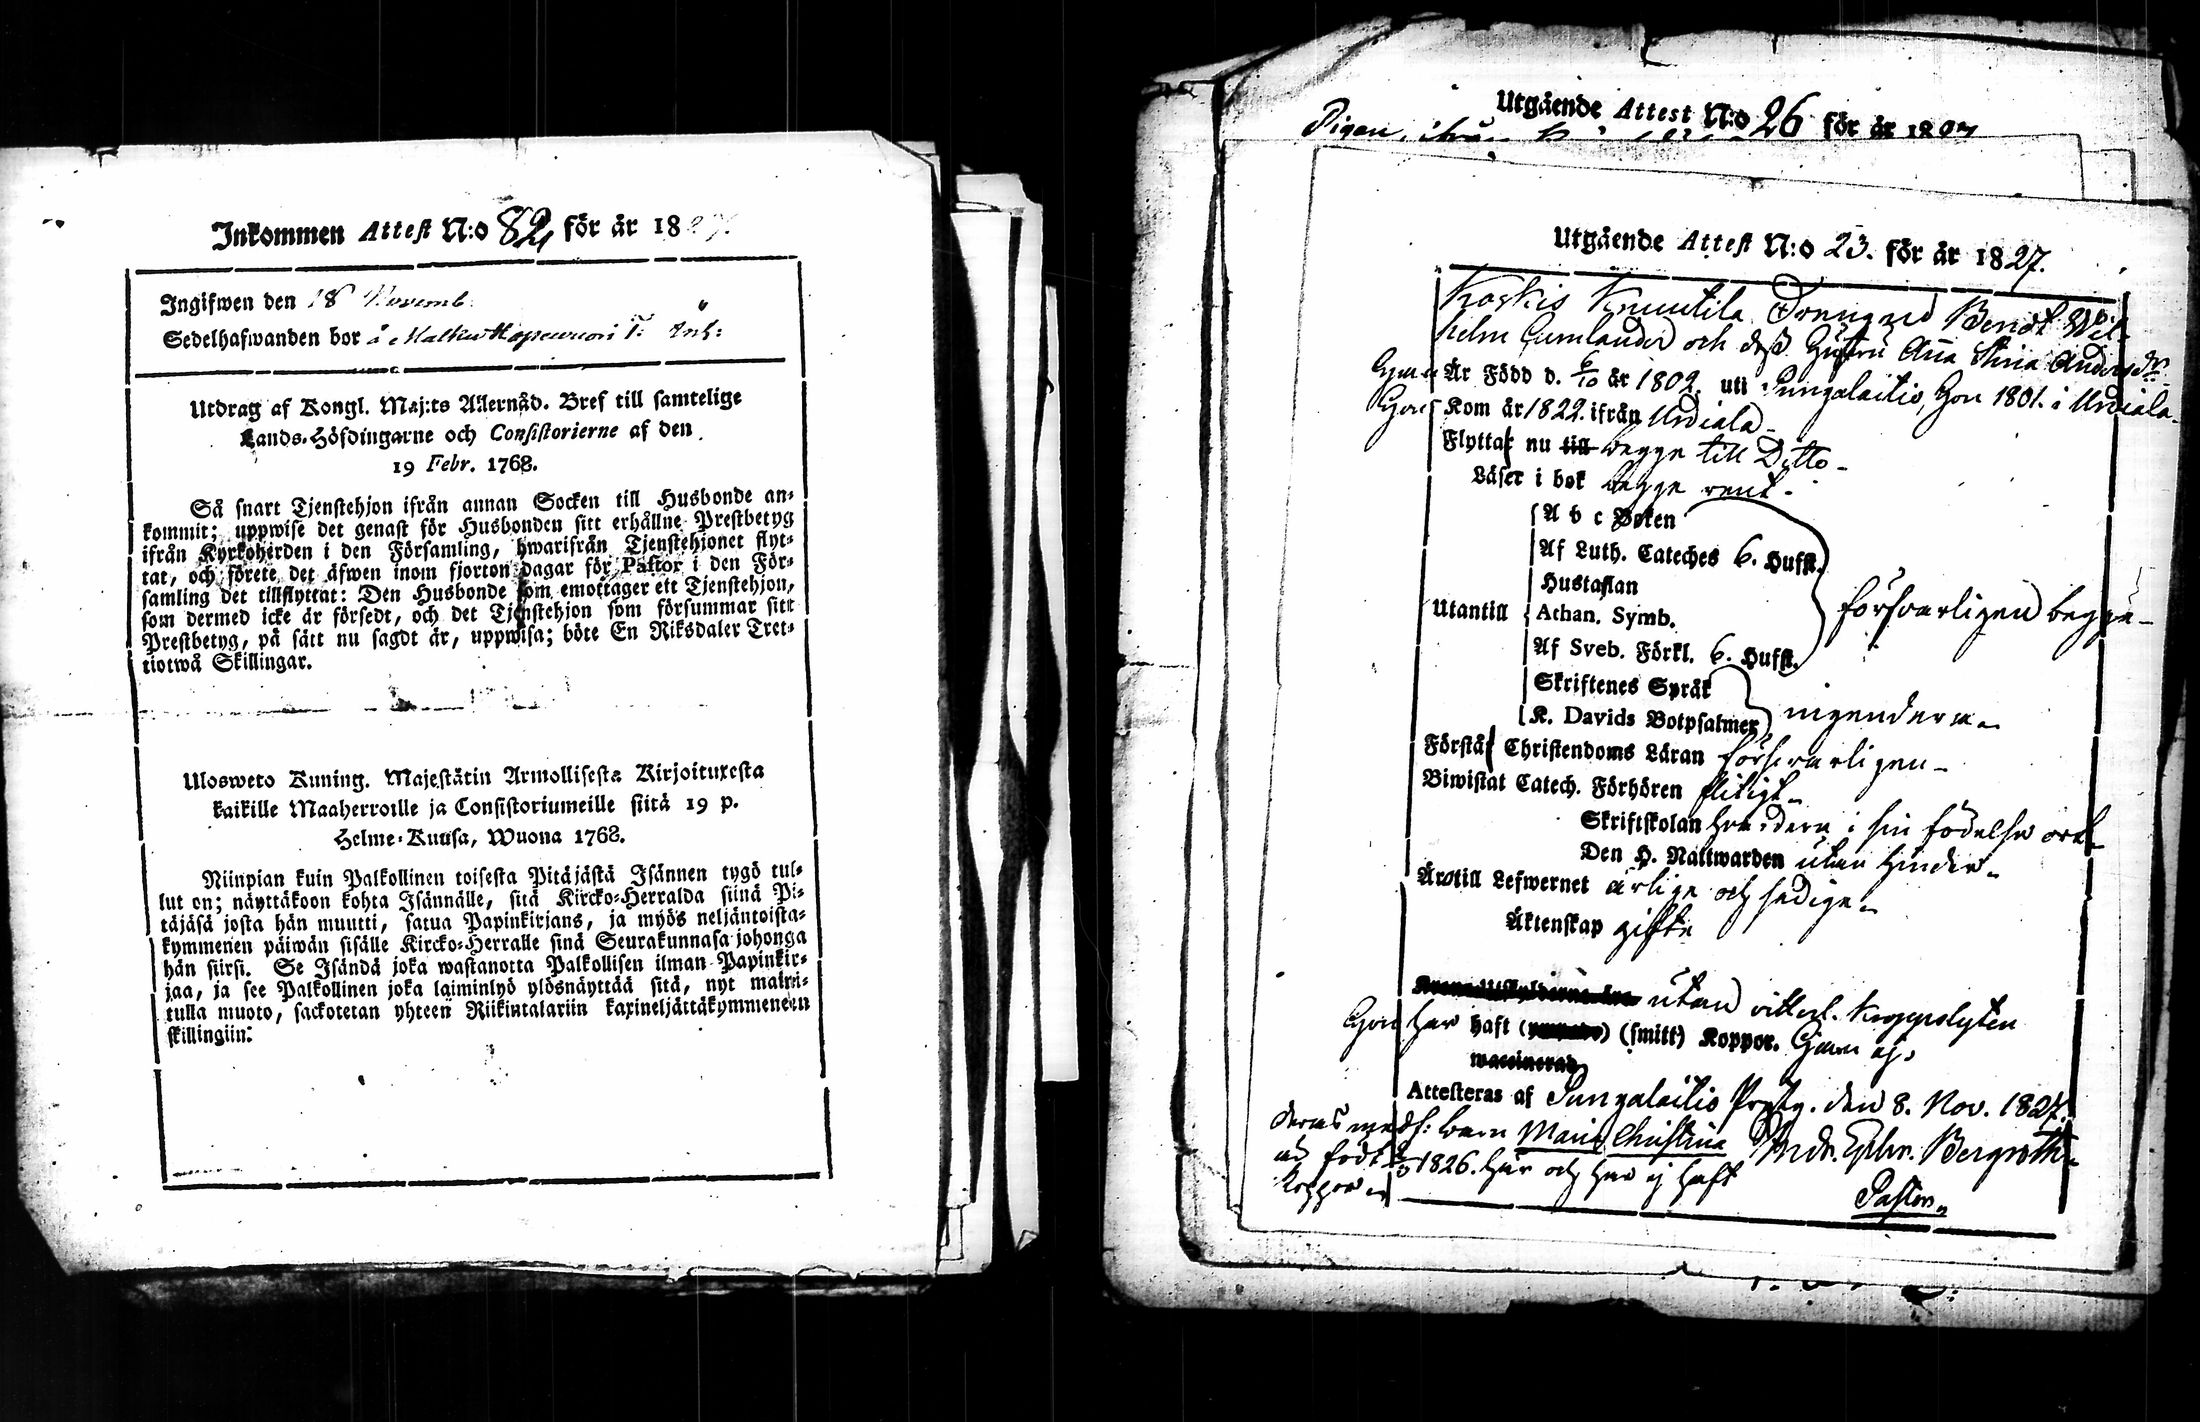 Inkommen Attest N:o 82 för år 1827.
Ingifwen den 18 Novemb.
Sedelhafwanden bor å
Utdrag af Kongl. Maj:ts Allernåd. Bref till samtelige
Lands-Höfdingarne och Consistorierne af den
19 Febr. 1768.
Så snart Tjenstehjon ifrån annan Socken till Husbonde an-
kommit; uppwise det genast för Husbonden sitt erhållne Prestbetyg
ifrån Kyrkoherden i den Församling, hwarifrån Tjenstehjonet flyt-
tat, och förete det äfwen inom fjorton dagar för Pastor i den För-
samling det tillflyttat: Den Husbonde som emottager ett Tjenstehjon,
som dermed icke är försedt, och det Tjenstehjon som försummar sitt
Prestbetyg, på sätt nu sagdt är, uppwisa; böte En Riksdaler Tret-
tiotwå Skillingar.
Ulosweto Kuning. Majestätin Armollisesta Kirjoituxesta
kaikille Maaherroille ja Consistoriumeille siitä 19 p.
Helme-Kuusa, Wuona 1768.
Niinpian kuin Palkollinen toisesta Pitäjästä Isännen tygö tul-
lut on; näyttäkoon kohta Isännälle, sitä Kircko-Herralda siinä Pi-
täjäsä josta hän muutti, saatua Papinkirjans, ja myös neljäntoista-
kymmenen päiwän sisälle Kircko-Herralle sinä Seurakunnasa johonga
hän siirsi. Se Isändä joka wastanotta Palkollisen ilman Papinkir-
jaa, ja see Palkollinen joka laiminlyö ylösnäyttää sitä, nyt maini-
tulla muoto, sackotetan yhteen Riikintalariin kaxineljättäkymmeneen
skillingiin.
Utgående Attest N:o 26 för år 1827
Pigan
Utgående Attest N:o 23. för år 1827.
Koskis Knuutila Drängen Bendt Wil-
helm Cumlander och dess Hustru Ana Stina Andersdr
Är Född d. 6/10 år 1802. uti Sungalaitio, Hon 1801. i Urdiala.
Kom år 1822. ifrån Urdiala.
Flytta nu till begge till Ditto.
Läser i bok begge rent.
A b c Boken
Af Luth. Cateches 6. Hufst.
Hustaflan
Utantill Athan. Symb. försvarligen begge
Af Sveb. Förkl. 6. Hufst.
Skriftenes Språk
K. Davids Botpsalmer ingendera
Förstå Christendoms Läran försvarligen
Biwistat Catech. Förhören flitigt
Skriftskolan hvardera i sin födelse ort
Den H. Nattwarden utan hinder
Äro till Lefwernet ärlige och sedige
Äktenskap gifte
utan vitterl. kroppslyten
Hon har haft (smitt) Koppor. Han ej.
waccinerad
Attesteras af Sungalaitio Prgdg. den 8. Nov. 1827.
deras medf: barn Maria Christina Andr. Ephr. Bergroth
är född 1826. här och har ej haft
Koppor
Pastor